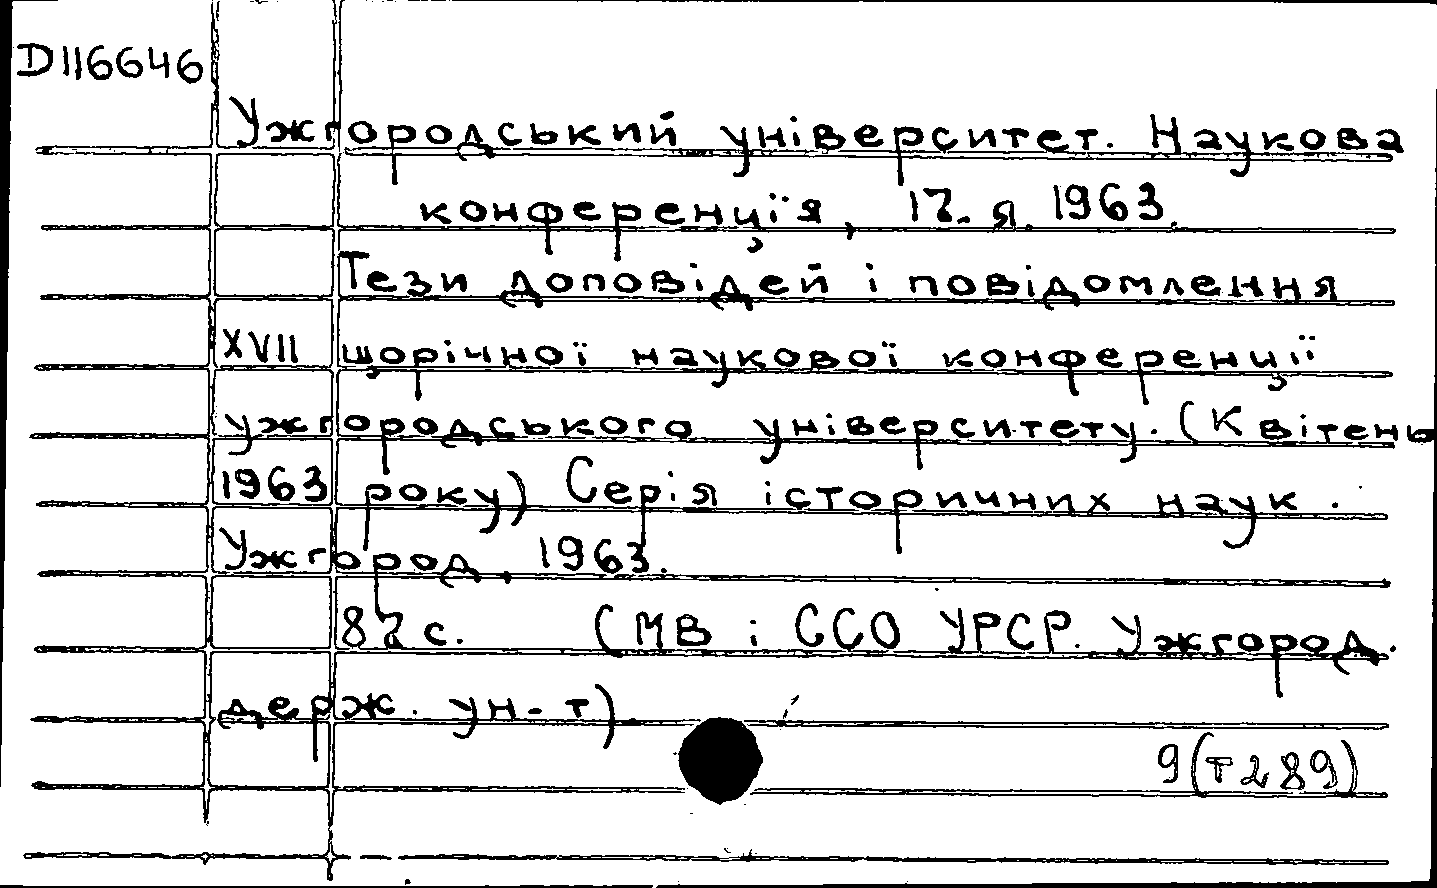 D116646
Ужгородський університет. Наукова
конференція, 17-я. 1963.
Тези доповідей і повідомлення
XVII щорічної наукової конференції
ужгородського університету. (Квітень
1963 року) Серія історичних наук.
Ужгород, 1963.
87 с. (МВ і ССО УРСР. Ужгород.
держ. ун-т)
9(т289)